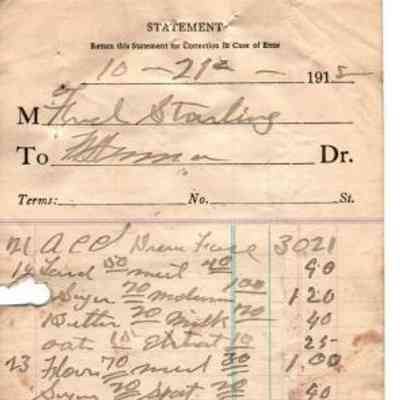 STATEMENT
Return this Statement for Correction in Case of Error
10 - 21 - 1918
M Fred Starling
To Dr.
Terms: No. St.
21 acc 3021
14 Lard 50 meal 40 90
Sugar 20 100 1 20
Butter 20 Milk 20 40
oats 15 Extract 10 25
23 Flour 70 meal 30 1.00
Sugar 20 20 90